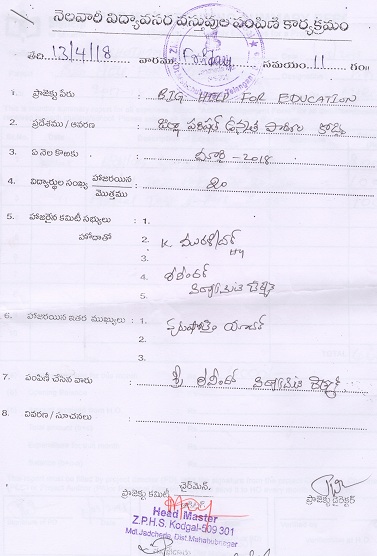 నెలవారీ విద్యావసర వస్తువుల పంపిణీ కార్యక్రమం
తేది 13/4/18 వారము Friday సమయం 11 గం
1. ప్రాజెక్టు పేరు : BIG HELP FOR EDUCATION
2. ప్రదేశము / ఆవరణ : జిల్లా పరిషత్ ఉన్నత పాఠశాల
3. ఏ నెల కొఱకు : మార్చి - 2018
4. విద్యార్థుల సంఖ్య హాజరయిన / మొత్తము : 20
5. హాజరైన కమిటీ సభ్యులు : 1.
హోదాతో 2. K.
3.
4.
5.
6. హాజరయిన ఇతర ముఖ్యులు : 1. పురుషోత్తం యాదవ్
2.
3.
7. పంపిణీ చేసిన వారు : శ్రీ
8. వివరణ / సూచనలు :
ప్రాజెక్టు కమిటీ ఛైర్మెన్.
ప్రాజెక్టు డైరెక్టర్
Head Master
Z.P.H.S. Kodgal-509 301
Mdl.Jadcherla, Dist.Mahabubnagar